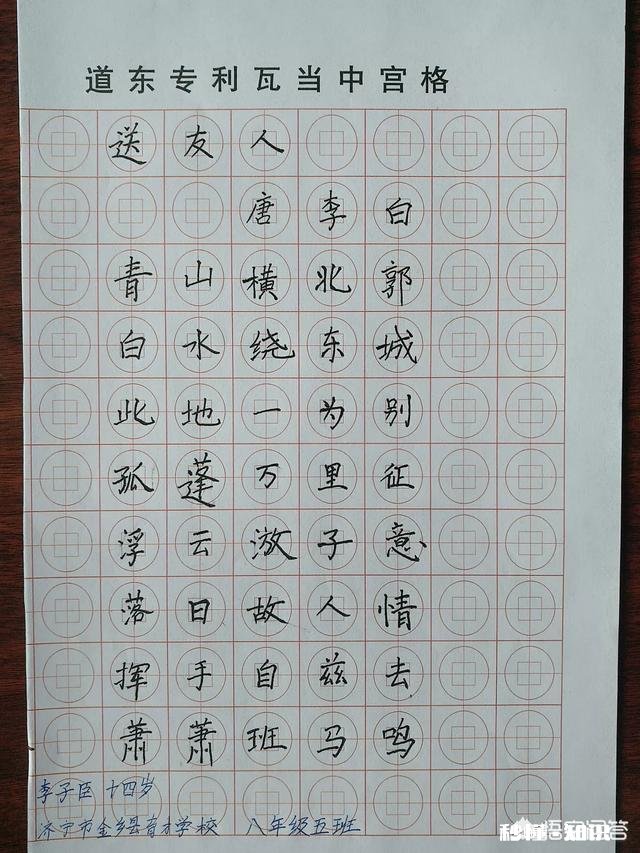 道东专利瓦当中宫格
送友人
唐李白
青山横北郭
白水绕东城
此地一为别
孤蓬万里征
浮云游子意
落日故人情
挥手自兹去
萧萧班马鸣
李子臣 十四岁
济宁市金乡县育才学校 八年级五班
悟空问答